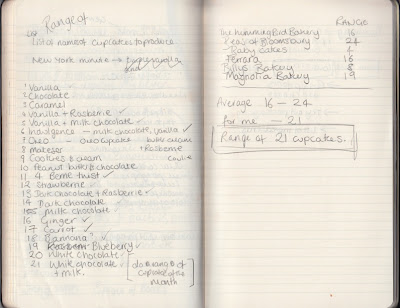 Range of
List of names of cupcakes to produce
New York minute →
1 Vanilla ✓
2 Chocolate
3 Caramel
4 Vanilla + Rasberrie ✓
5 Vanilla + milk chocolate ✓
6 Indulgence - milk chocolate, vanilla ✓
7 Oreo - Oreo cupcake butter cream
8 malteser + Rasberrie
9 Cookies & cream
10 Peanut butter & chocolate
11 4 Bome twist ✓
12 Strawberrie
13 Dark chocolate + Rasberrie ✓
14 Dark chocolate
15 milk chocolate ✓
16 Ginger ✓
17 Carrot ✓
18 Bannana
19 Blueberry ✓
20 White chocolate ✓
21 White chocolate ✓
+ milk.
do 2 cupcakes of the month
RANGE
The Hummingbird Bakery 16
Peas of Bloomsbury 24
Baby cakes 4
Ferrara 16
Billys Bakery 8
Magnolia Bakery 19
Average 16 - 24
for me - 21
Range of 21 cupcakes.